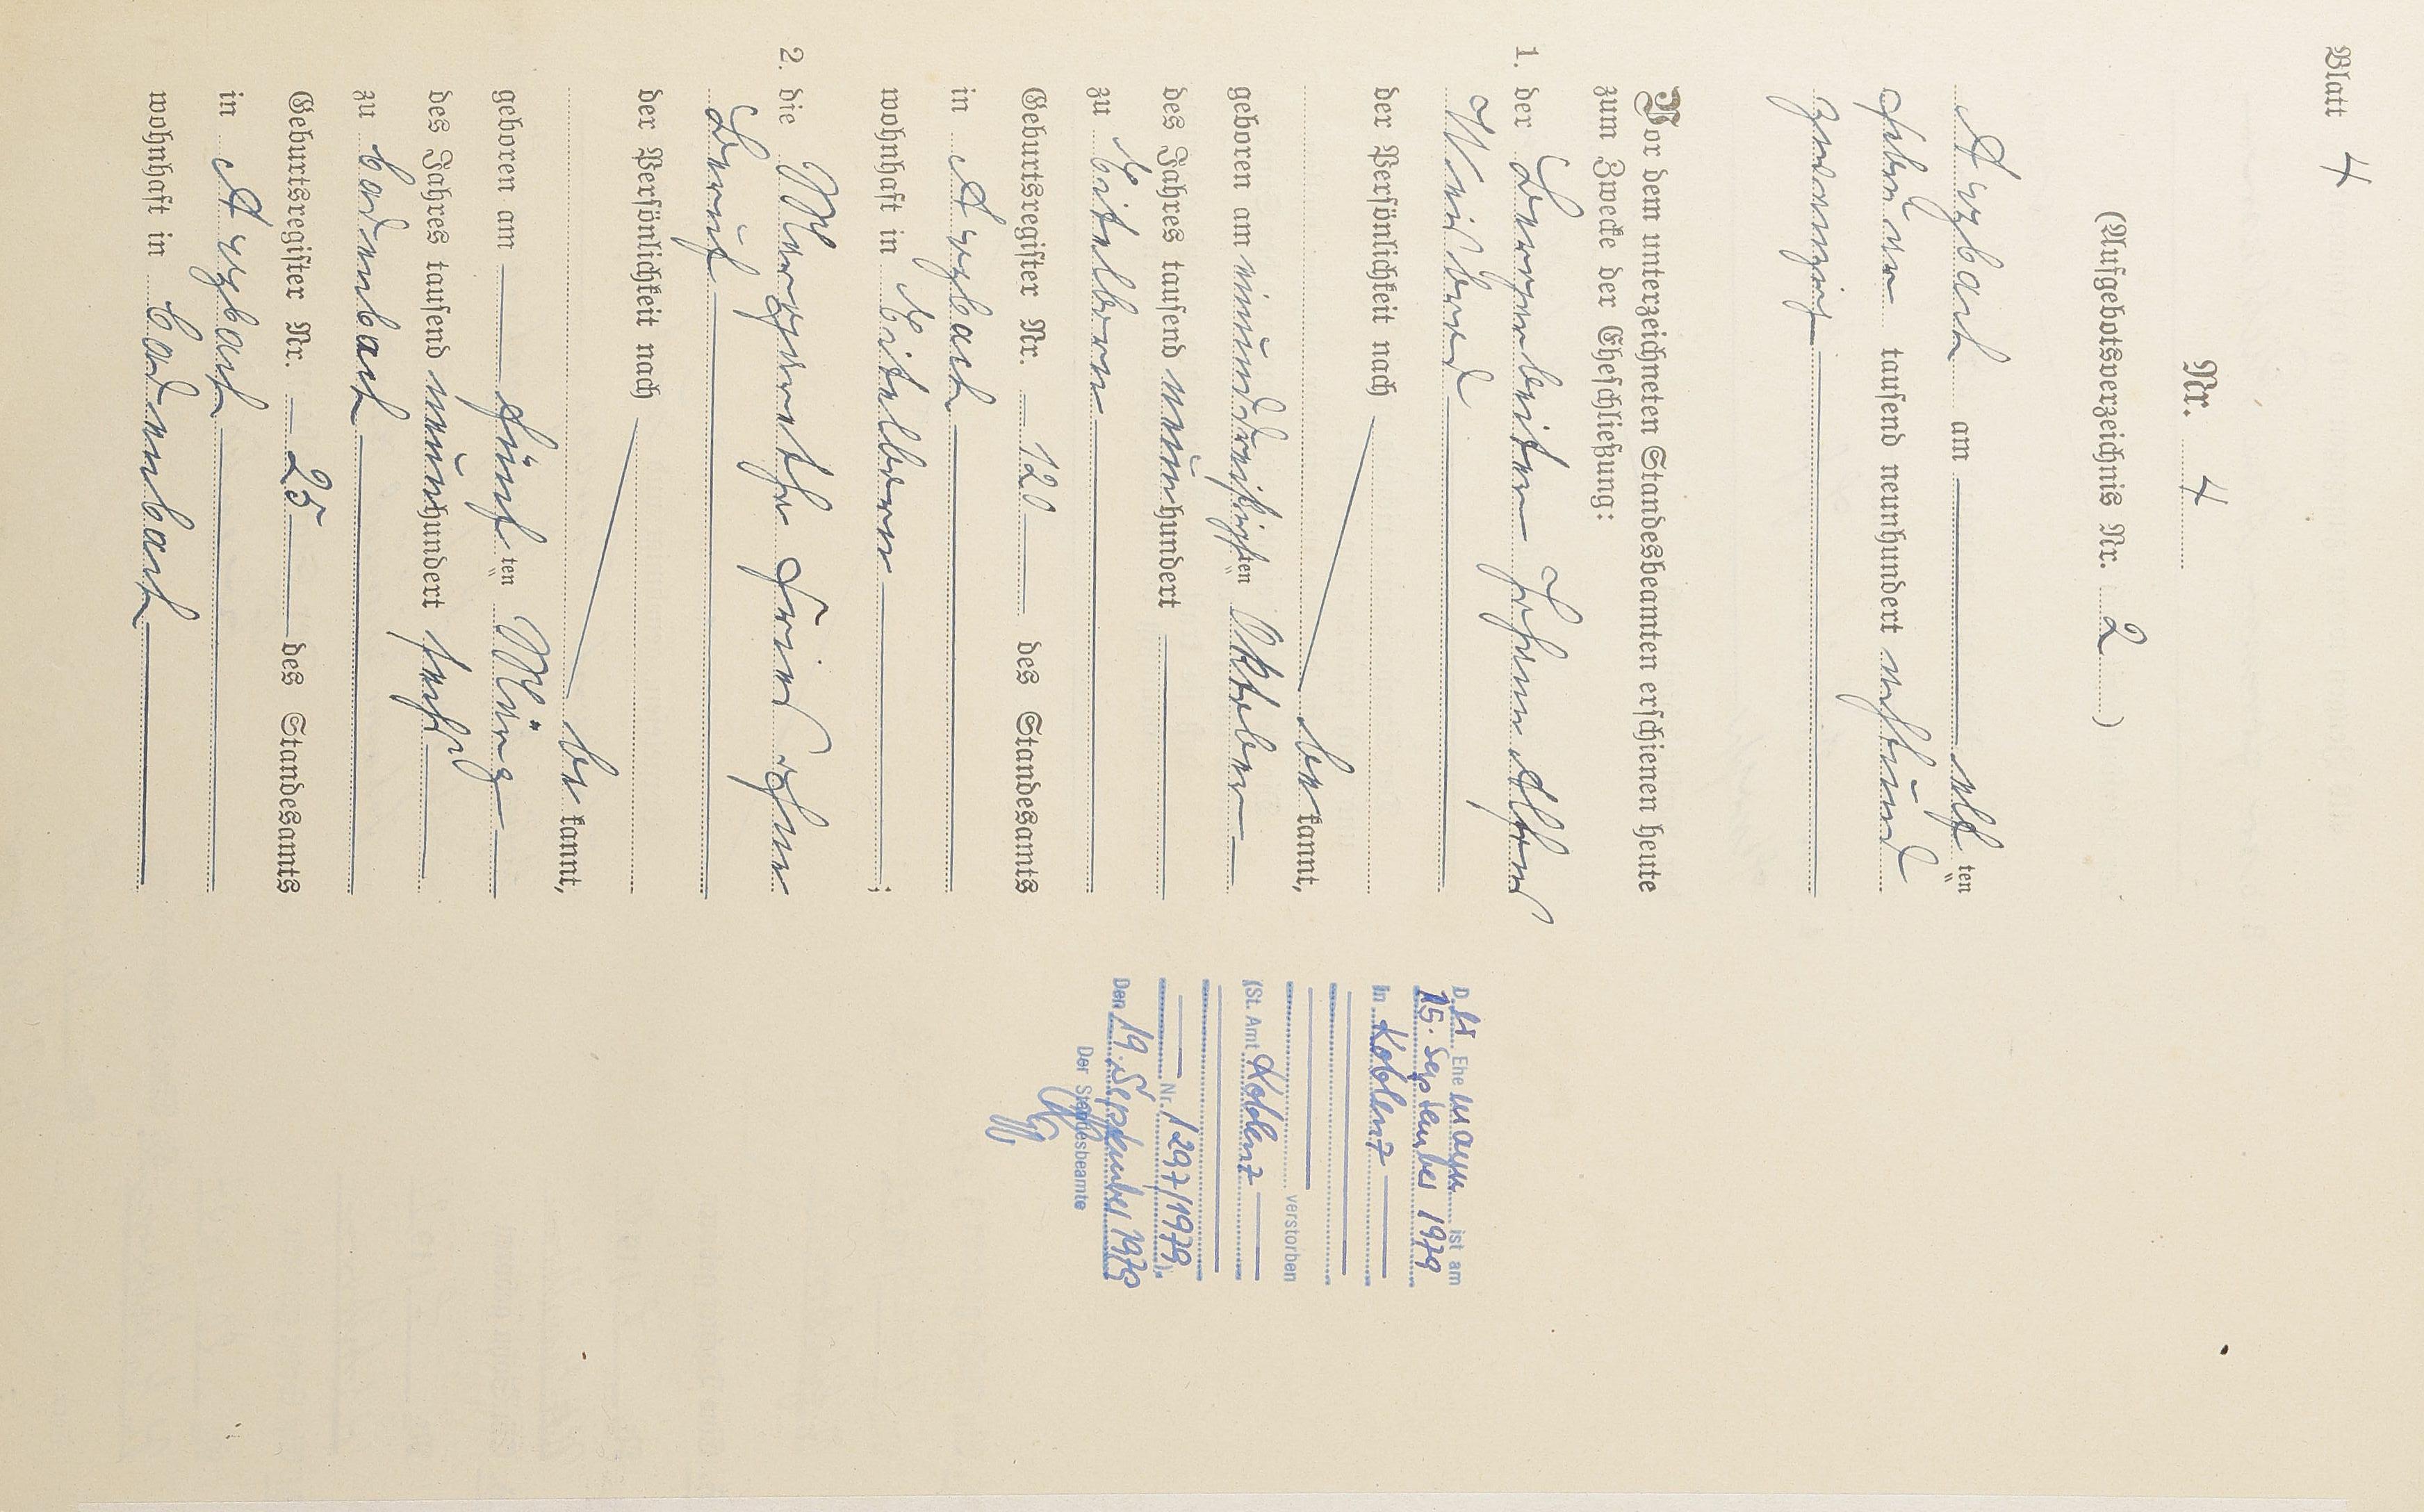 Blatt 4
Nr. 4
(Aufgebotsverzeichnis Nr. 2)
Arzbach am elften
Februar tausend neunhundert achtund
zwanzig
Vor dem unterzeichneten Standesbeamten erschienen heute
zum Zwecke der Eheschließung:
1. der Bergarbeiter Johann Alfons
der Persönlichkeit nach
be kannt,
geboren am einunddreißigsten Oktober
des Jahres tausend neunhundert
zu Eitelborn
Geburtsregister Nr. 120 des Standesamts
in Arzbach
wohnhaft in Eitelborn;
2. die Margarethe Frink ohne
Beruf
der Persönlichkeit nach
be kannt,
geboren am fünften März
des Jahres tausend neunhundert sechs
zu Cadenbach
Geburtsregister Nr. 25 des Standesamts
in Arzbach
wohnhaft in Cadenbach
D. er Ehemann ist am
15. September 1979
in Koblenz
verstorben
(St. Amt Koblenz
Nr. 1297/1979).
Den 19. September 1979
Der Standesbeamte